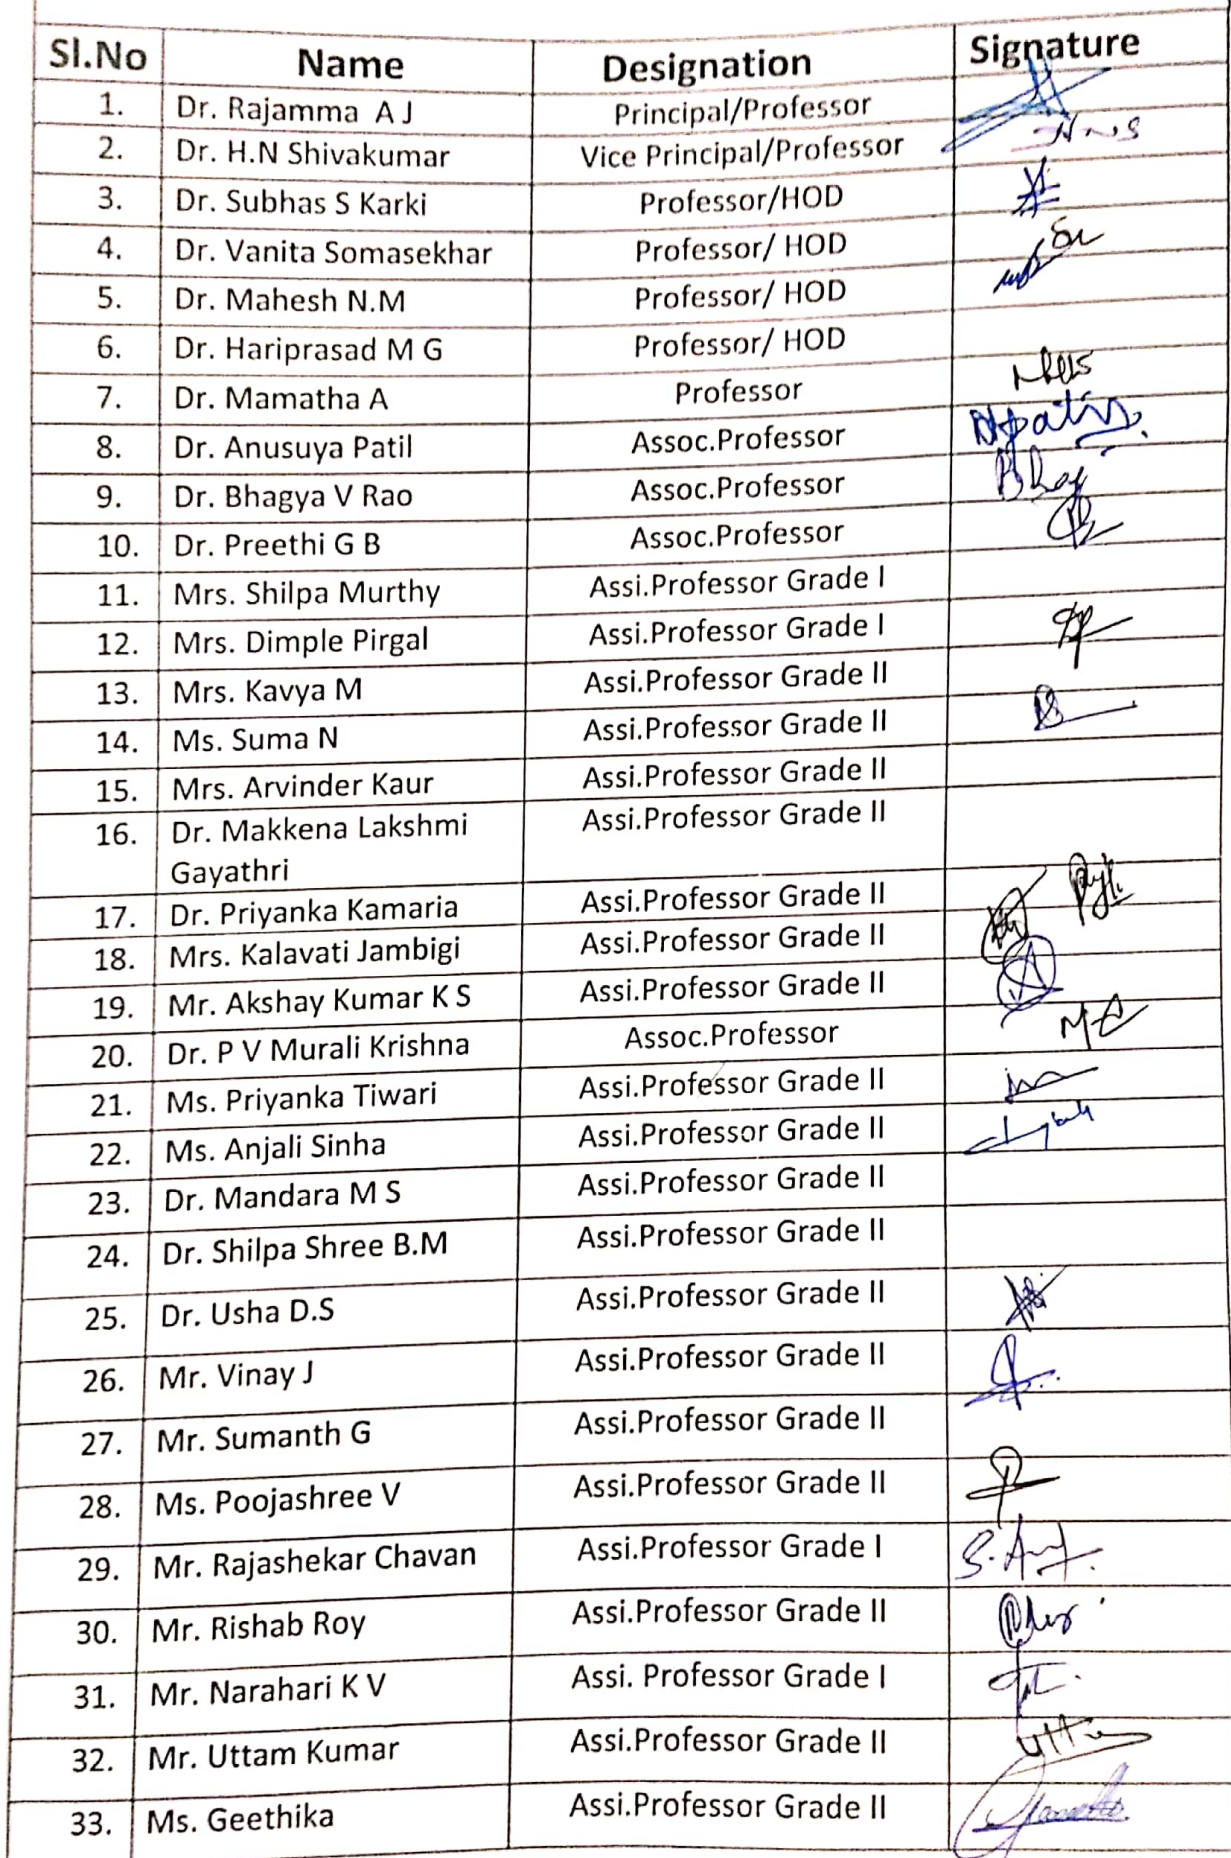 Sl.No Name Designation Signature
1. Dr. Rajamma A J Principal/Professor
2. Dr. H.N Shivakumar Vice Principal/Professor
3. Dr. Subhas S Karki Professor/HOD
4. Dr. Vanita Somasekhar Professor/ HOD
5. Dr. Mahesh N.M Professor/ HOD
6. Dr. Hariprasad M G Professor/ HOD
7. Dr. Mamatha A Professor
8. Dr. Anusuya Patil Assoc.Professor
9. Dr. Bhagya V Rao Assoc.Professor
10. Dr. Preethi G B Assoc.Professor
11. Mrs. Shilpa Murthy Assi.Professor Grade I
12. Mrs. Dimple Pirgal Assi.Professor Grade I
13. Mrs. Kavya M Assi.Professor Grade II
14. Ms. Suma N Assi.Professor Grade II
15. Mrs. Arvinder Kaur Assi.Professor Grade II
16. Dr. Makkena Lakshmi Assi.Professor Grade II
Gayathri
17. Dr. Priyanka Kamaria Assi.Professor Grade II
18. Mrs. Kalavati Jambigi Assi.Professor Grade II
19. Mr. Akshay Kumar K S Assi.Professor Grade II
20. Dr. P V Murali Krishna Assoc.Professor
21. Ms. Priyanka Tiwari Assi.Professor Grade II
22. Ms. Anjali Sinha Assi.Professor Grade II
23. Dr. Mandara M S Assi.Professor Grade II
24. Dr. Shilpa Shree B.M Assi.Professor Grade II
25. Dr. Usha D.S Assi.Professor Grade II
26. Mr. Vinay J Assi.Professor Grade II
27. Mr. Sumanth G Assi.Professor Grade II
28. Ms. Poojashree V Assi.Professor Grade II
29. Mr. Rajashekar Chavan Assi.Professor Grade I
30. Mr. Rishab Roy Assi.Professor Grade II
31. Mr. Narahari K V Assi. Professor Grade I
32. Mr. Uttam Kumar Assi.Professor Grade II
33. Ms. Geethika Assi.Professor Grade II